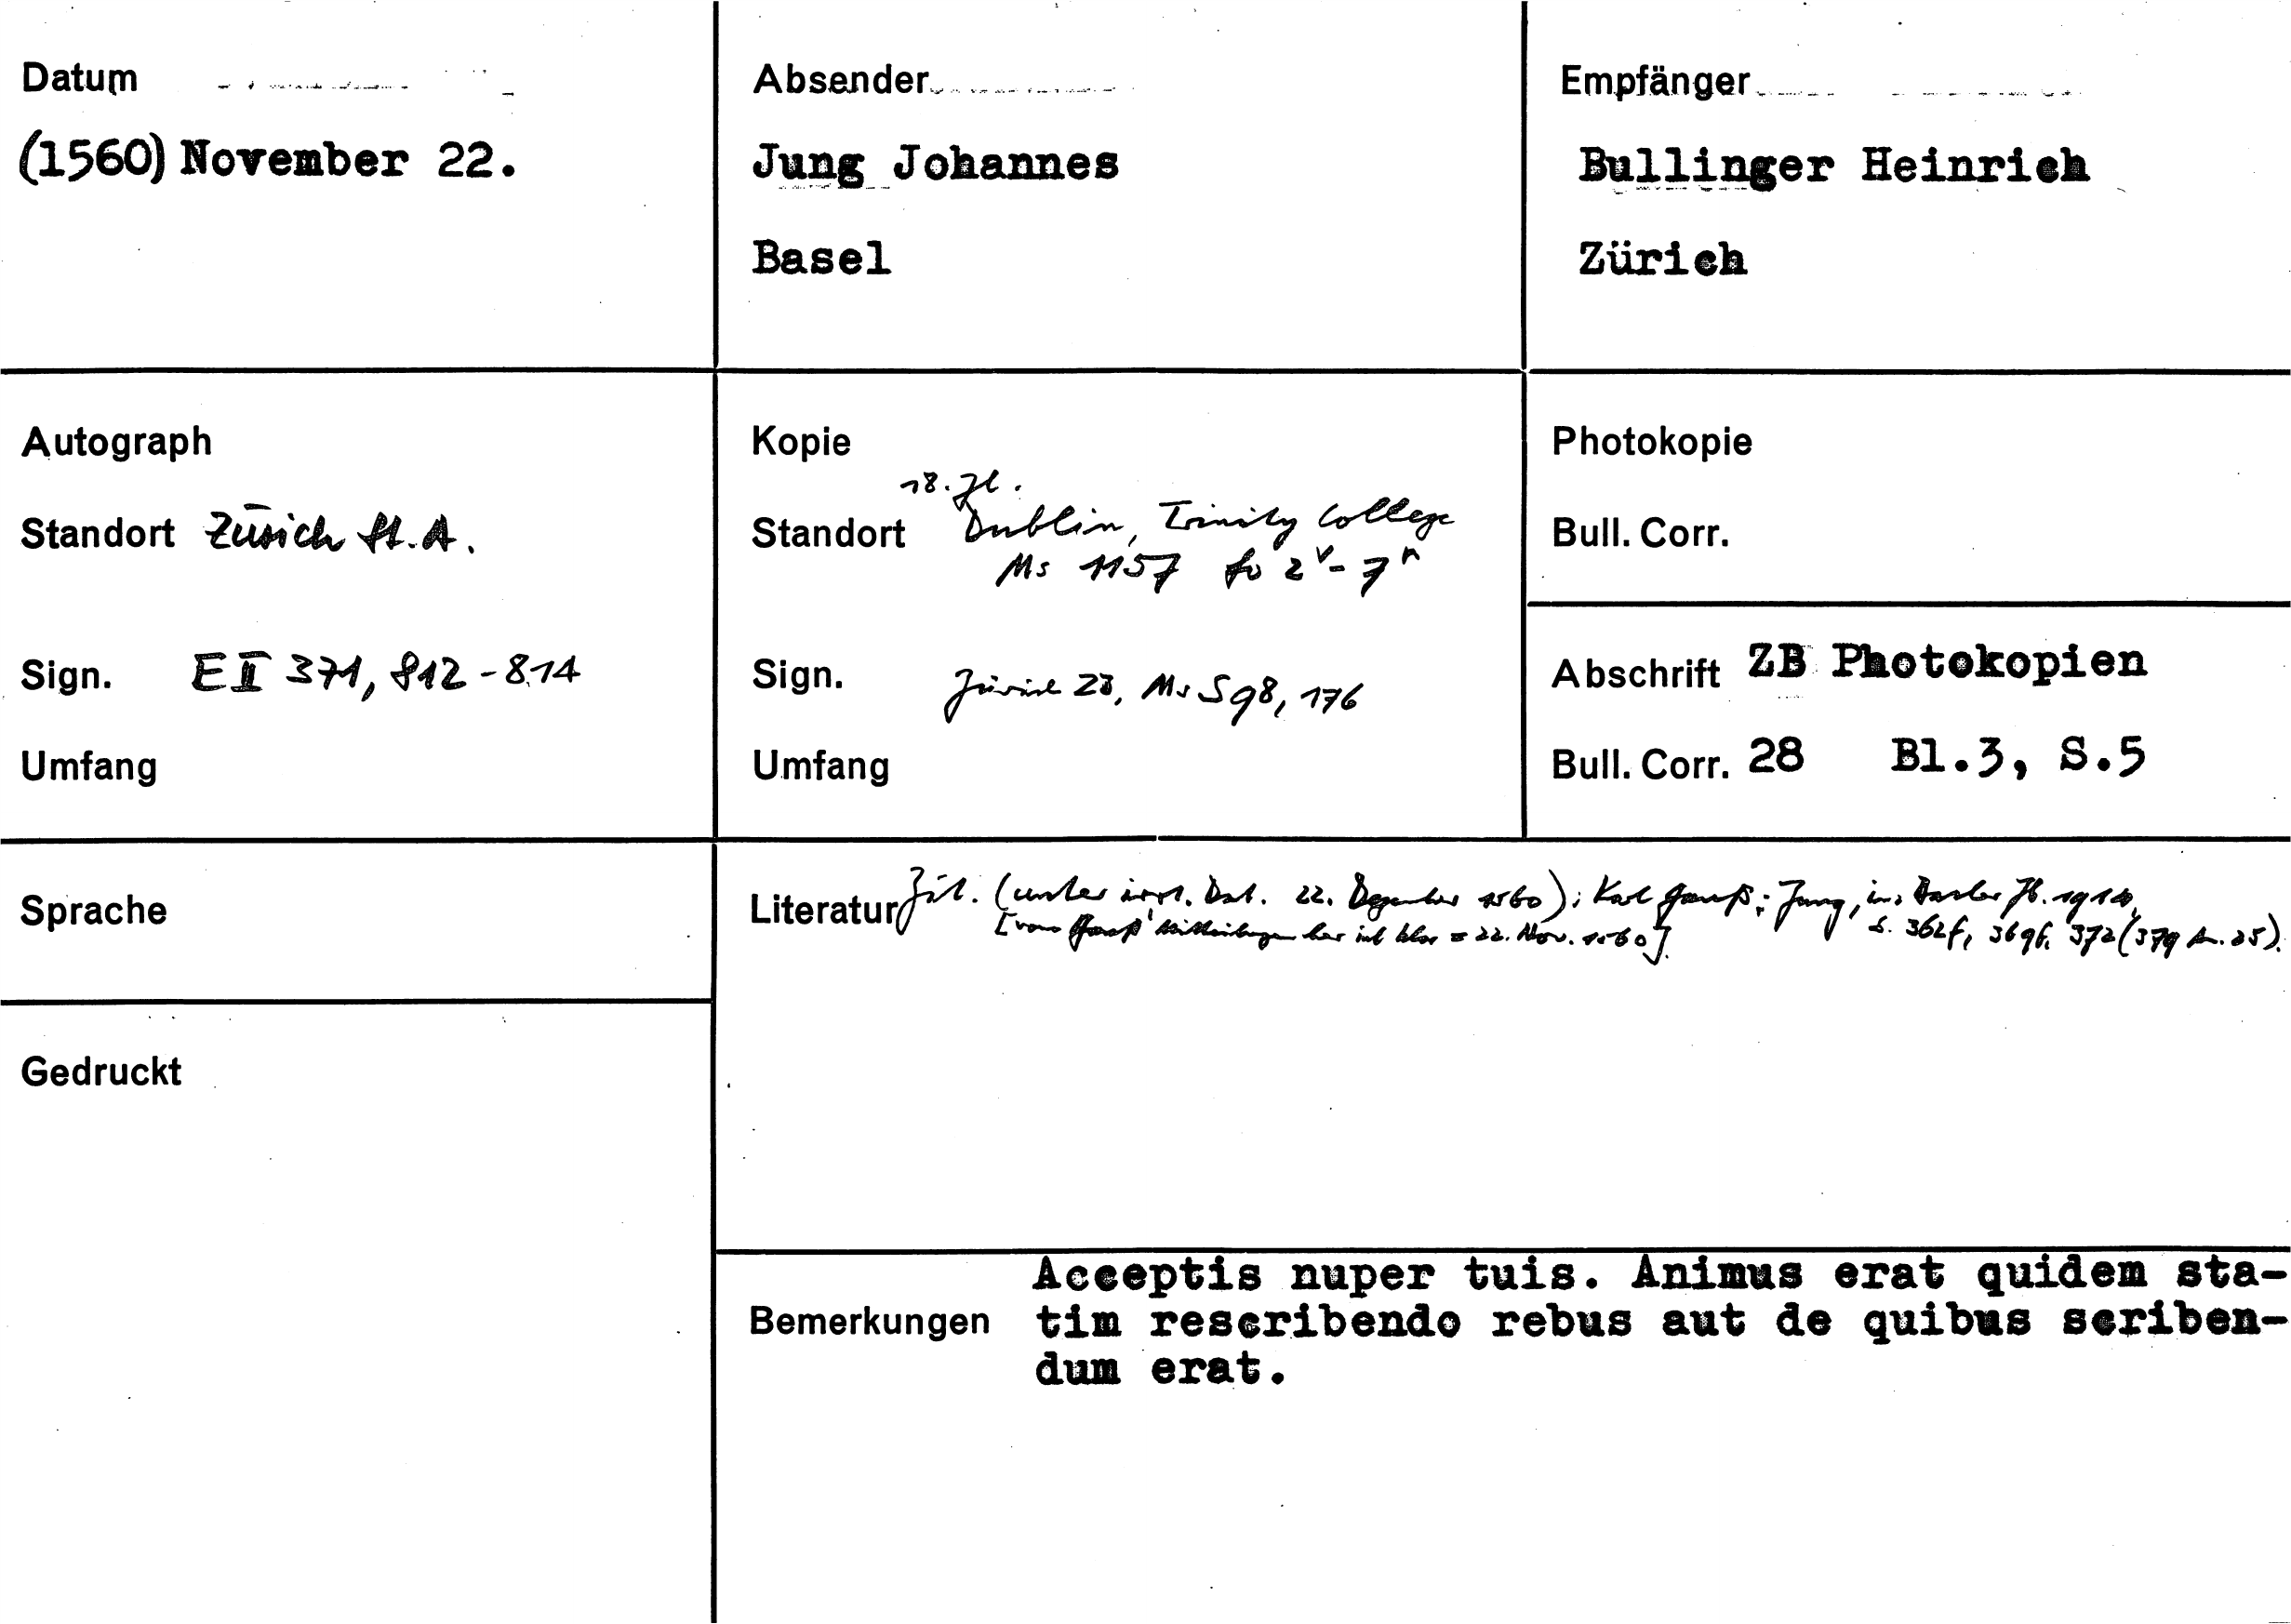 Datum
(1560) November 22.
Absender
Jung Johannes
Basel
Empfänger
Bullinger Heinrich
Zürich
Autograph
Standort Zürich St.A.
Sign. E II 371, 812-814
Umfang
Kopie
18. Jh.
Standort Dublin, Trinity College
Ms 1157 fo 2v - 7r
Sign. Zürich ZB, Ms S 98, 176
Umfang
Photokopie
Bull. Corr.
Abschrift ZB Photokopien
Bull. Corr. 28 Bl.3, S.5
Sprache
Literatur Zit. (unter irrt. Dat. 22. Dezember 1560); Karl Gauß: Jung, in: Basler Jb. 1910,
= 22. Nov. 1560]. S. 362f, 369f. 372 (379 A. 25).
Gedruckt
Bemerkungen
Acceptis nuper tuis. Animus erat quidem sta-
tim rescribendo rebus aut de quibus scriben-
dum erat.